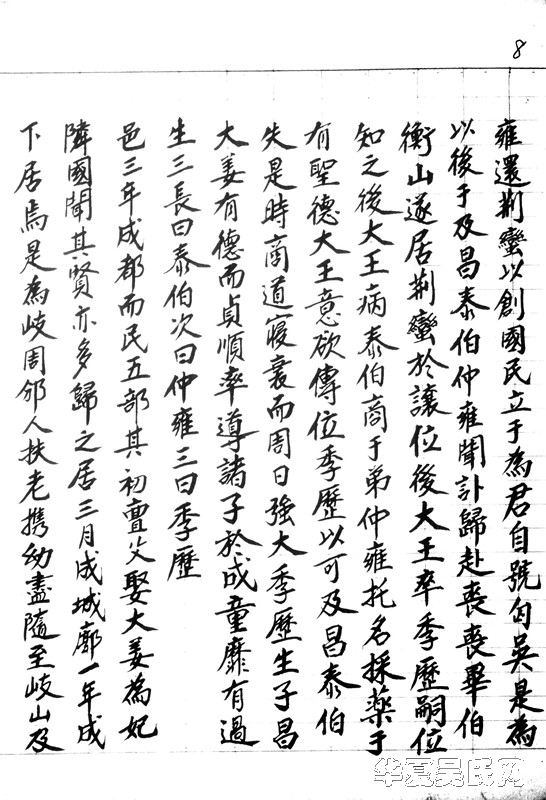 8
下居焉是為岐周邠人扶老携幼盡隨至岐山及
隣國聞其賢亦多歸之居三月成城廓一年成
邑三年成都而民五部其初亶父娶大姜為妃
生三長曰泰伯次曰仲雍三曰季歷
大姜有德而貞順率導諸子於成童靡有過
失是時商道寖衰而周日強大季歷生子昌
有聖德大王意欲傳位季歷以可及昌泰伯
知之後大王病泰伯商于弟仲雍托名採藥于
衡山遂居荆蠻於讓位後大王卒季歷嗣位
以後于及昌泰伯仲雍聞訃歸赴喪喪畢伯
雍還荆蠻以創國民立于為君自號勾吳是為
华夏吴氏网